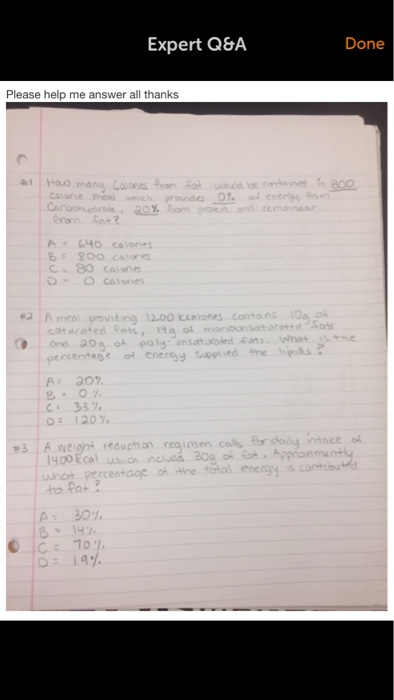 Expert Q&A
Done
Please help me answer all thanks
#1 How many Calories from fat would be contained in 800
calorie meal which provides 0% of energy from
Carbohydrate, 20% from protein and remainder
from fat?
A = 640 calories
B = 800 calories
C = 80 calories
D = 0 calories
#2 A meal providing 1200 kcalories contains 10g of
saturated fats, 14g of monounsaturated fats
and 20g of poly-unsaturated fats. What is the
percentage of energy supplied the lipids?
A = 20%
B = 0%
C = 33%
D = 120%
#3 A weight reduction regimen calls for daily intake of
1400 kcal which includs 30g of fat. Approximently
what percentage of the total energy is contributed
to fat?
A = 30%
B = 14%
C = 70%
D = 19%